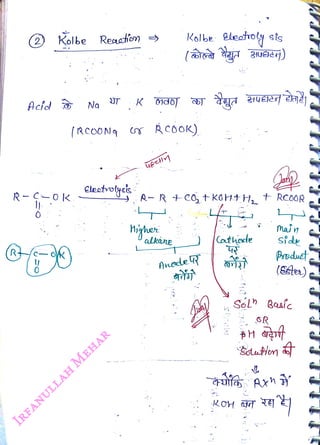 ② Kolbe Reaction ⇒ Kolbe Electrolysis
(कोल्बे वैद्युत अपघटन)
Acid के Na या K लवण का वैद्युत अपघटन होता है।
(RCOONa or RCOOK)
पहचान
R-C-OK Electrolysis R-R + CO₂ + KOH + H₂ + RCOOR
O
Higher alkane
Cathode पर बनेंगे
Main Side Product (ईस्टर)
Anode पर बनेंगे
R-C-OK
O
Solⁿ Basic
OR
pH बढ़ेगी
Solution की
क्योंकि Rxⁿ में
KOH बन रहा है।
IRFANULLAH MEHAR